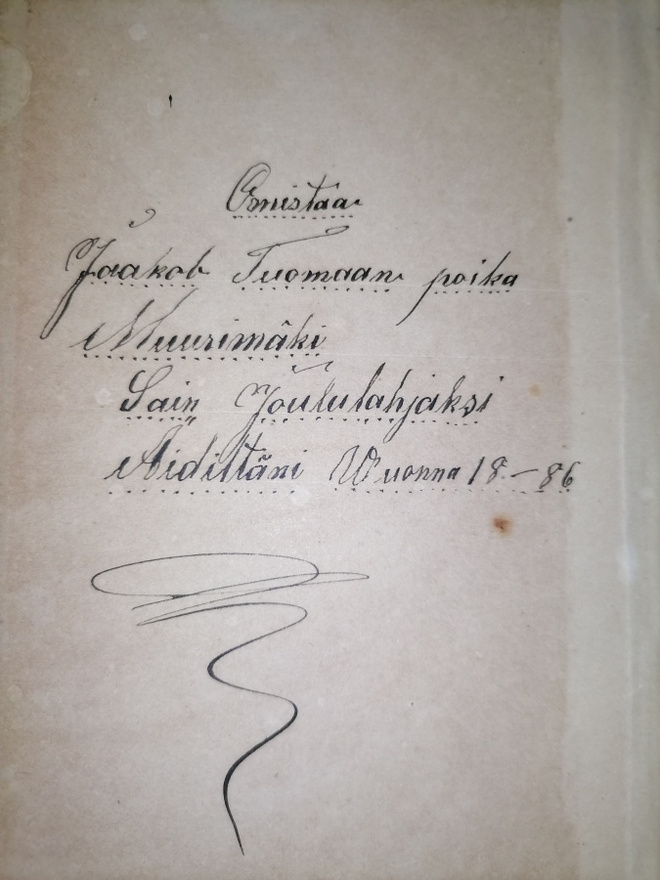 Omistaa
Jaakob Tuomaan poika
Muurimäki
Sain Joululahjaksi
Äidiltäni Wuonna 18-86